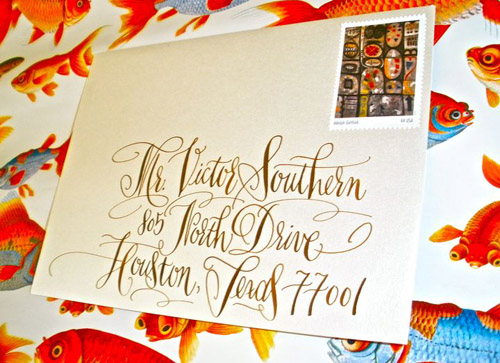 Mr. Victor Southern
805 North Drive
Houston, Texas 77001
44 USA